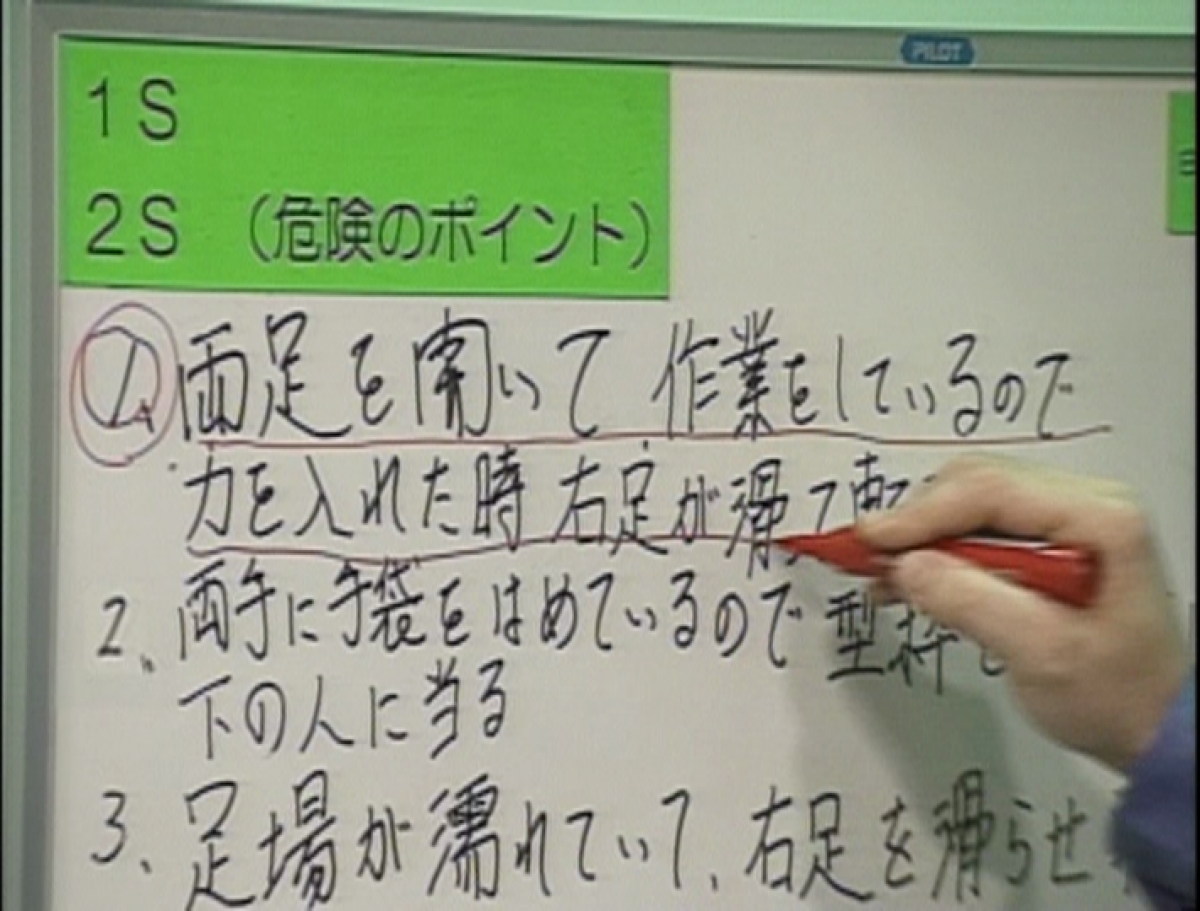 PILOT
1S
2S (危険のポイント)
1. 両足を開いて 作業をしているので
力を入れた時 右足が滑って
2. 両手に手袋をはめているので 型枠を
下の人に当る
3. 足場が濡れていて、右足を滑らせ